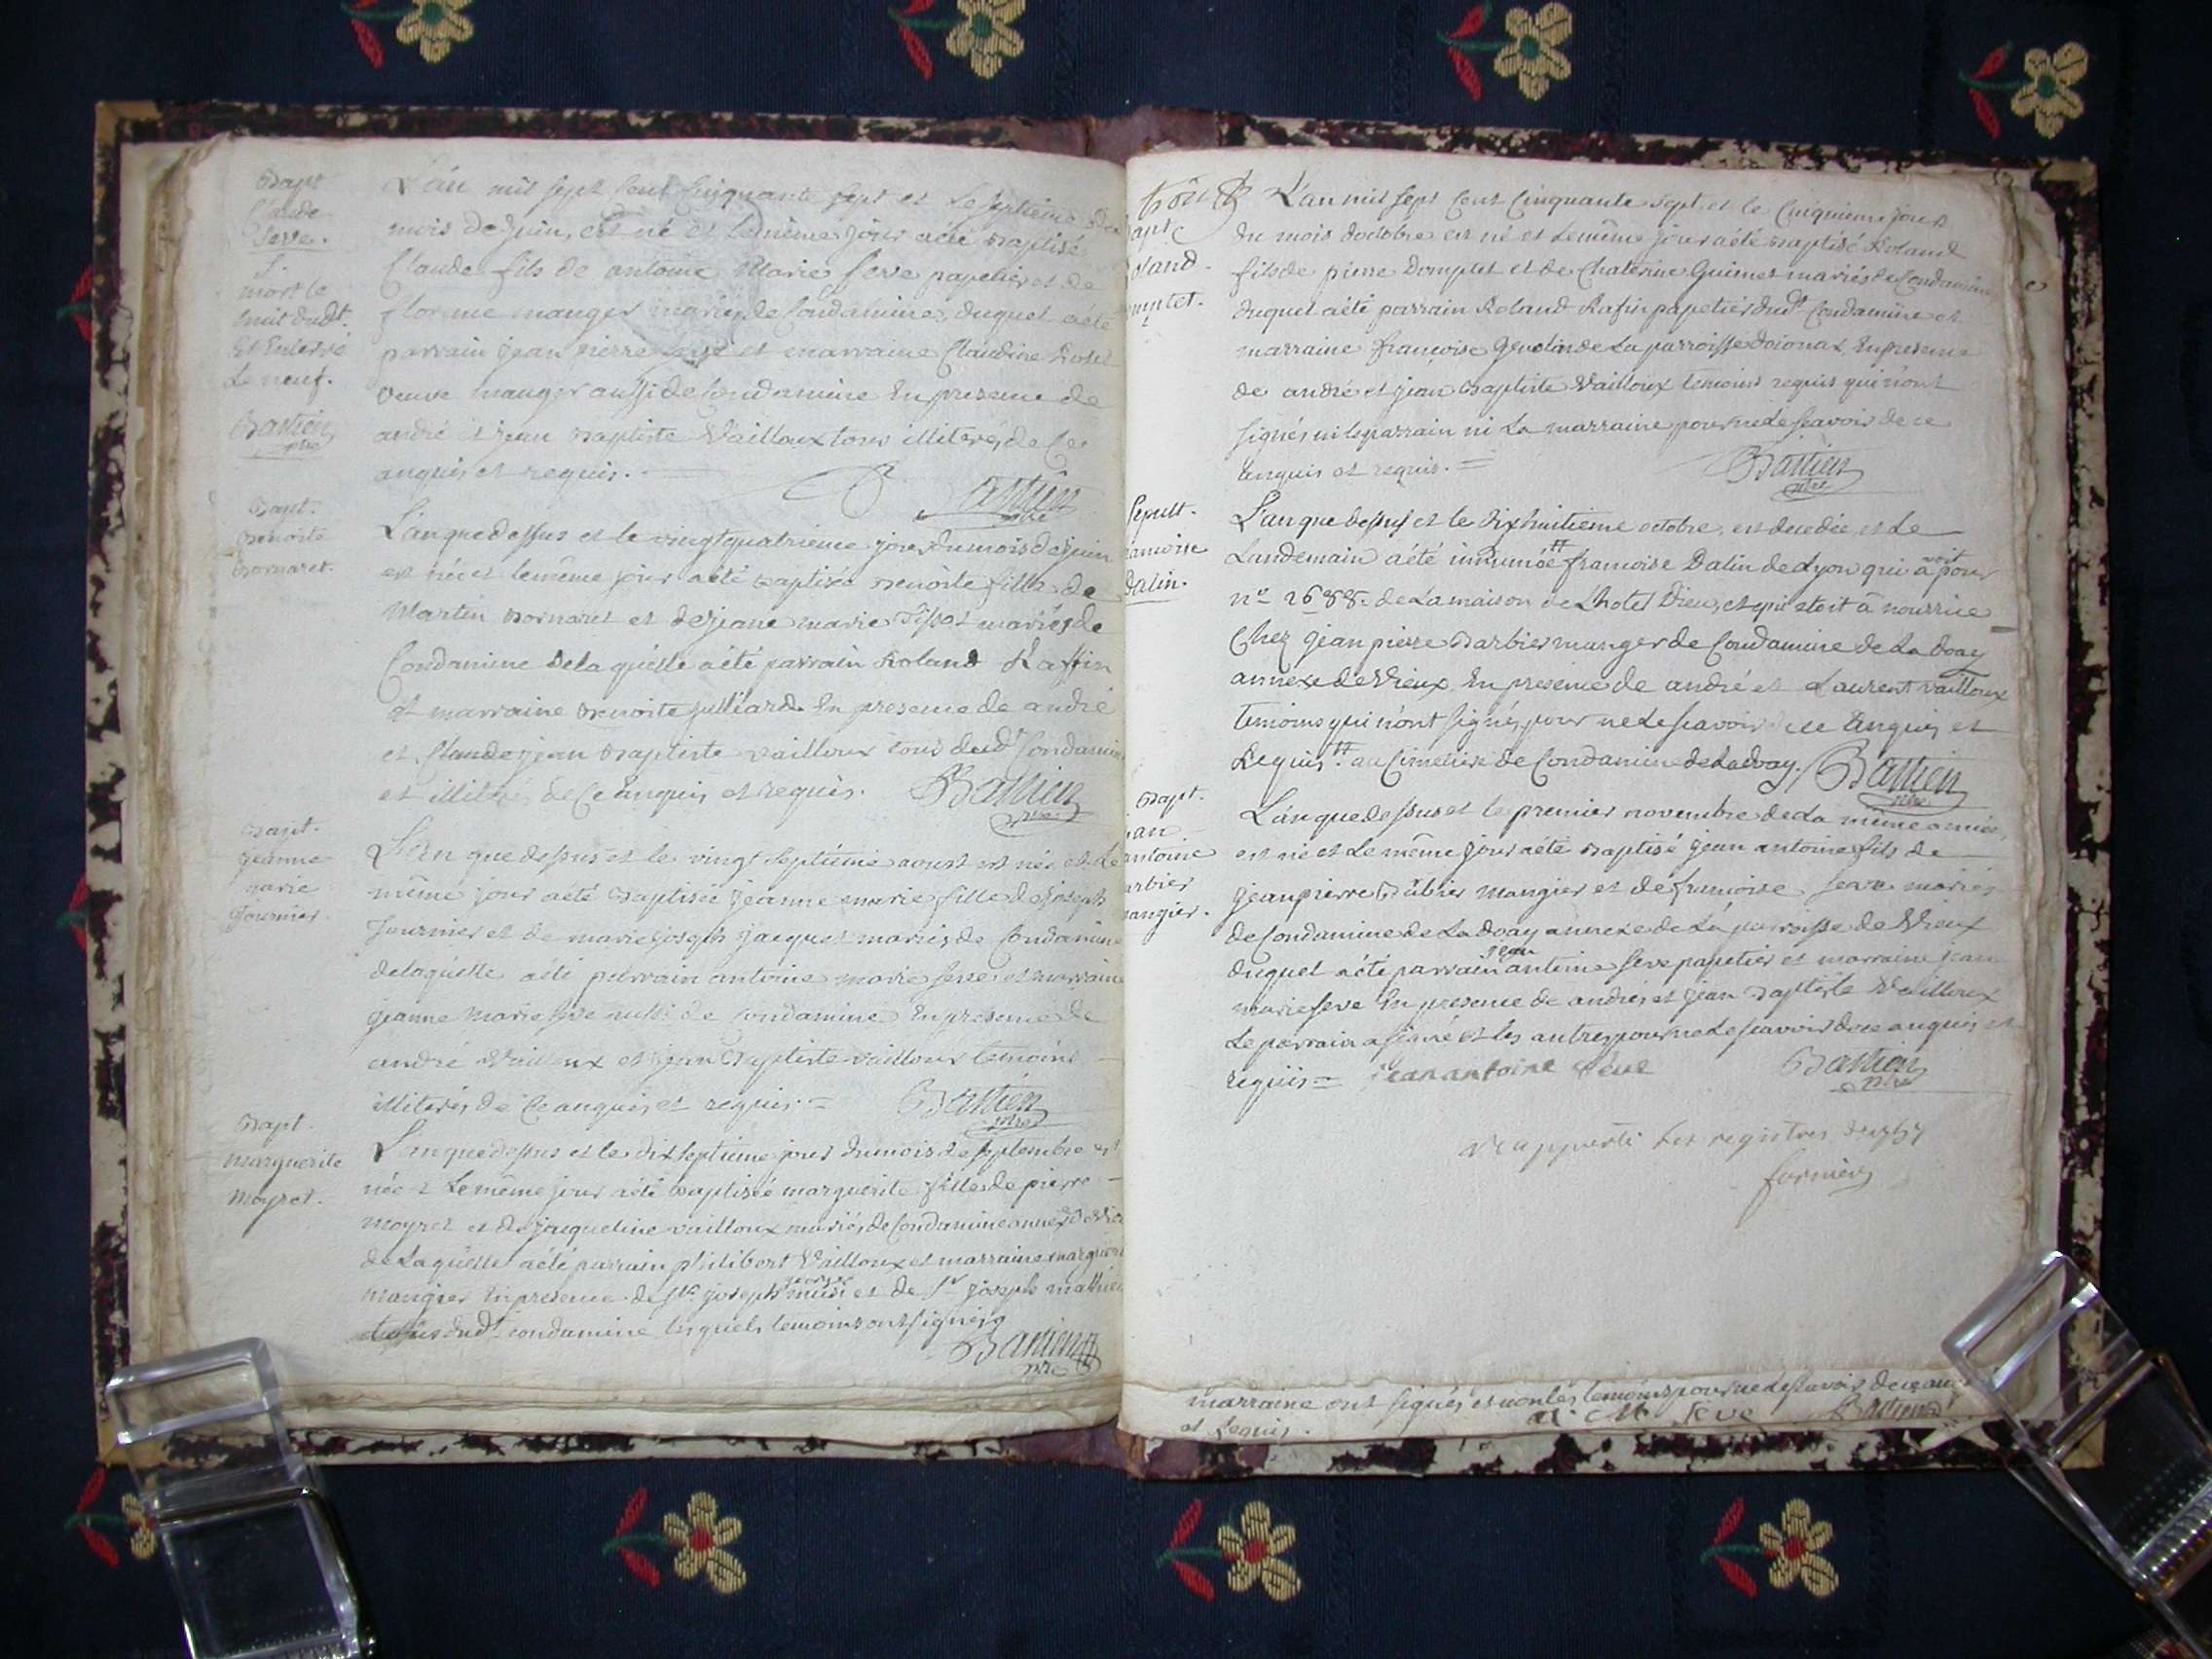 Bapt
Claude
Serve.
mort le
huit dudt.
Et Enterré
Le neuf.
Bastien
ptre
L'an mil sept Cent Cinquante sept et Le septieme
mois de juin, est né et le même jour a été Baptisé
Claude fils de antoine Marie serve papetier et de
florine manger mariés de Condamine, duquel a été
parrain jean pierre serve et marraine Claudine
veuve manger aussi de Condamine En presence de
andré et jean Baptiste Vailloux tous illiterés de Ce
anquis et requis.
Bastien
ptre
Bapt.
Benoite
Bornaret.
L'an que dessus et le vingt quatrieme jour du mois de juin
est née et le même jour a été Baptisée Benoite fille de
Martin Bornaret et de jeane marie Tissot mariés de
Condamine De la quelle a été parrain Roland Raffin
et marraine Benoite julliard En presence de andré
et Claude jean Baptiste vailloux tous dudt Condamine
et illiterés de Ce Enquis et requis. Bastien
ptre
Bapt.
jeanne
marie
fournier.
L'an que dessus et le vingt septième aoust est née et Le
même jour a été Baptisée jeanne marie fille de joseph
fournier et de marie joseph jacquet mariés de Condamine
de laquelle a été parrain antoine marie serve et marraine
jeanne marie serve aussi de Condamine En presence de
andré Vailloux et jean Baptiste vailloux temoins
illiterés de Ce anquis et requis. = Bastien
ptre
Bapt.
marguerite
Moyret.
L'an que dessus et le dix septieme jour du mois de septembre est
née et Le même jour a été Baptisée marguerite fille de pierre
moyret et de jacqueline vailloux mariés de Condamine annexe de
de Laquelle a été parrain philibert Vailloux et marraine
mangier En presence de Sr joseph et de Sr joseph mathieu
dudt condamine lesquels temoins ont signés
Bastien
ptre
L'an mil sept Cent Cinquante sept et le Cinquieme jour
apt
oland
omptet.
du mois doctobre est né et le même jour a été Baptisé Roland
fils de pierre Domptet et de Chaterine Guimet mariés de Condamine
duquel a été parrain Roland Rafin papetier dudt Condamine et
marraine françoise de La parroisse En presence
de andré et jean Baptiste Vailloux temoins requis qui n'ont
signés ni le parrain ni La marraine pour ne Le sçavoir de ce
Enquis et requis. = Bastien
ptre
Sepult.
ancoise
Dalin.
L'an que dessus et le dixhuitieme octobre, est decedée et Le
Landemain a été inhumée françoise Dalin de Lyon qui avoit pour
no 2688. de La maison de L'hotel Dieu, et qui etoit à nourrice
Chez jean pierre Barbier manger de Condamine de La doay
annexe de Vieux En presence de andré et Laurent vailloux
temoins qui n'ont signés pour ne Le sçavoir de ce Enquis et
Requis # au Cimetiere de Condamine de La doay. Bastien
ptre
Bapt.
ean
antoine
arbier
mangier.
L'an que dessus et le premier novembre de La même année,
est né et Le même jour a été Baptisé jean antoine fils de
jean pierre Barbier Mangier et de françoise serve mariés
de Condamine de La doay annexe de La parroisse de Vieux
duquel a été parrain jean antoine serve papetier et marraine jean
marie serve En presence de andré et jean Baptiste Vailloux
Le parrain a signé et les autres pour ne Le sçavoir de ce anquis et
requis = jean antoine seve Bastien
ptre
apporté Les registres
fornier
marraine ont signés et non les temoins pour ne Le sçavoir de ce
et Requis. a. M. Seve Bastien